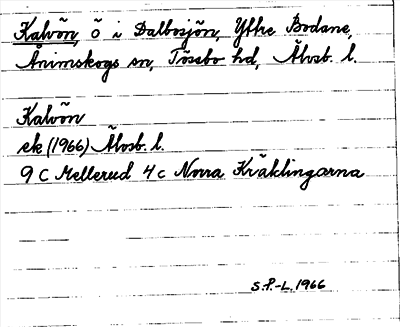 Kalvön, ö i Dalbosjön, Yttre Bodane,
Ånimskogs sn, Tössbo hd, Älvsb. l.
Kalvön
ek (1966) Älvsb. l.
9 C Mellerud 4 c Norra Kräklingarna
S.P.-L. 1966